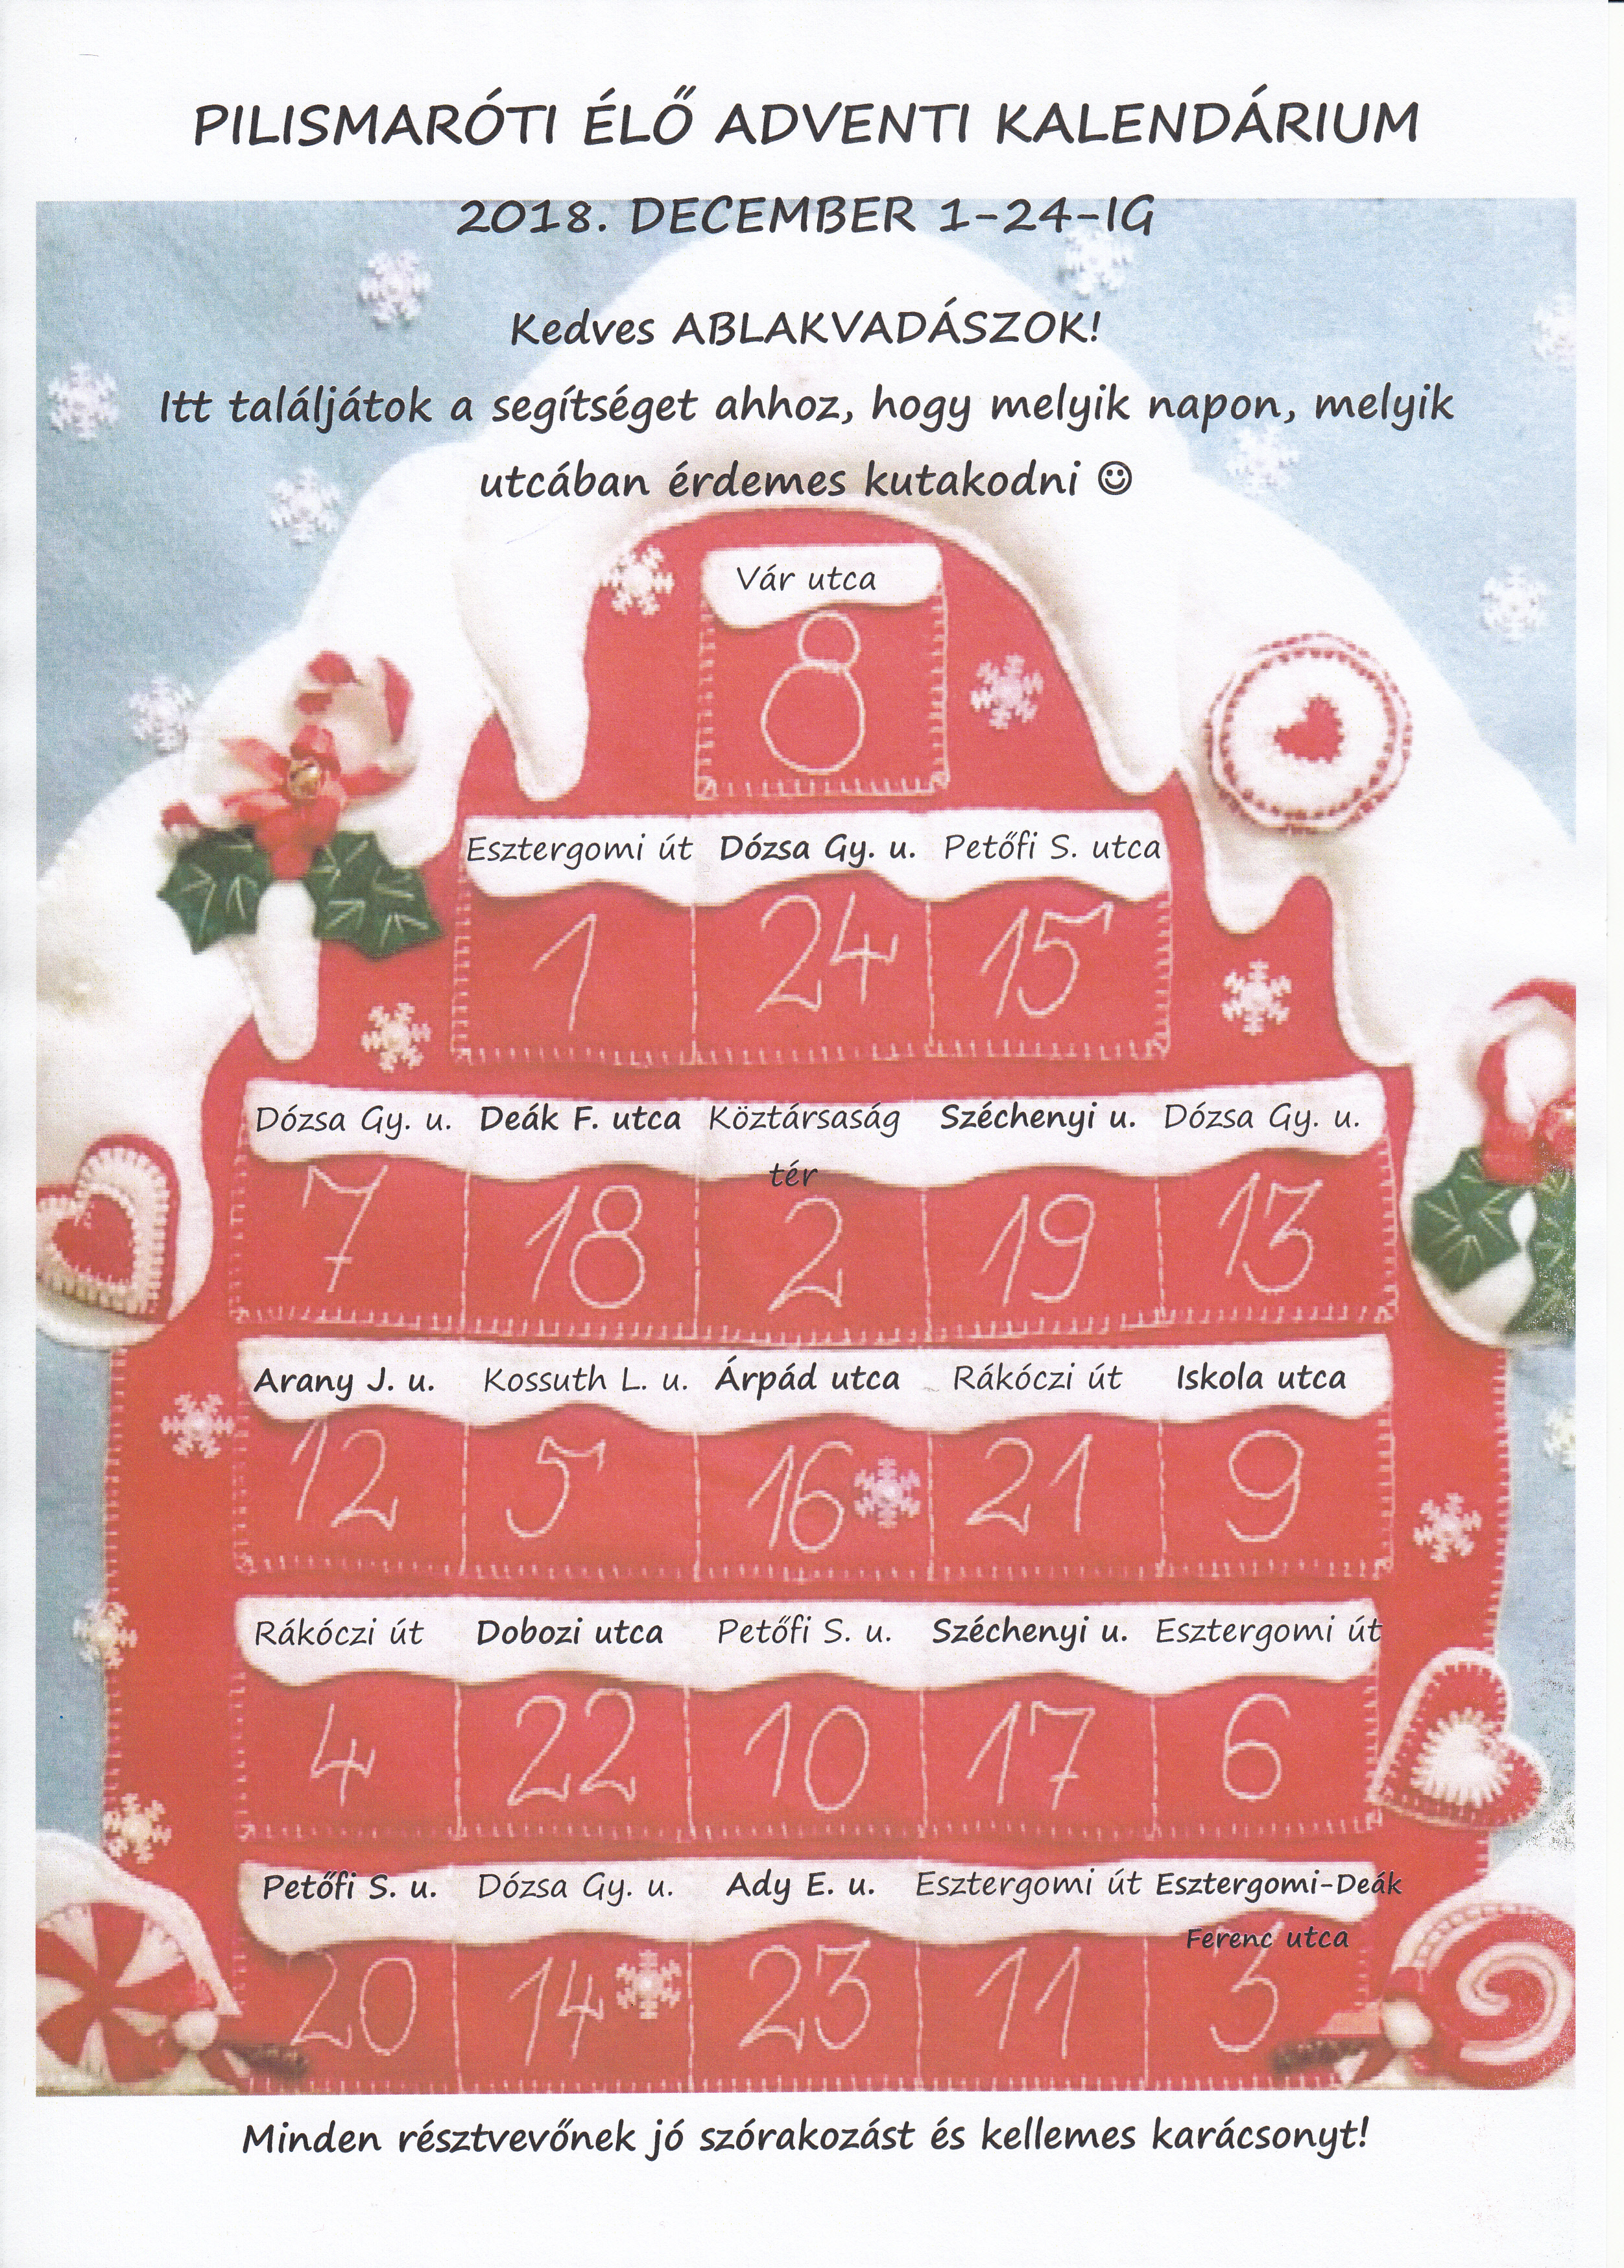 PILISMARÓTI ÉLŐ ADVENTI KALENDÁRIUM
2018. DECEMBER 1-24-IG
Kedves ABLAKVADÁSZOK!
Itt találjátok a segítséget ahhoz, hogy melyik napon, melyik
utcában érdemes kutakodni ☺
Vár utca
8
Esztergomi út Dózsa Gy. u. Petőfi S. utca
1 24 15
Dózsa Gy. u. Deák F. utca Köztársaság Széchenyi u. Dózsa Gy. u.
tér
7 18 2 19 13
Arany J. u. Kossuth L. u. Árpád utca Rákóczi út Iskola utca
12 5 16 21 9
Rákóczi út Dobozi utca Petőfi S. u. Széchenyi u. Esztergomi út
4 22 10 17 6
Petőfi S. u. Dózsa Gy. u. Ady E. u. Esztergomi út Esztergomi-Deák
Ferenc utca
20 14 23 11 3
Minden résztvevőnek jó szórakozást és kellemes karácsonyt!